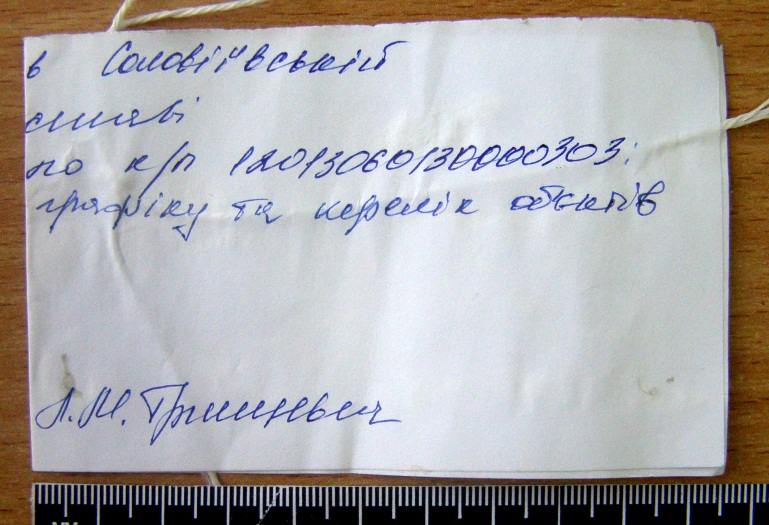 в Соловіївській
справі
по к/п 12013060130000303:
графіку та перелік обєктів
Л.М. Гриневич